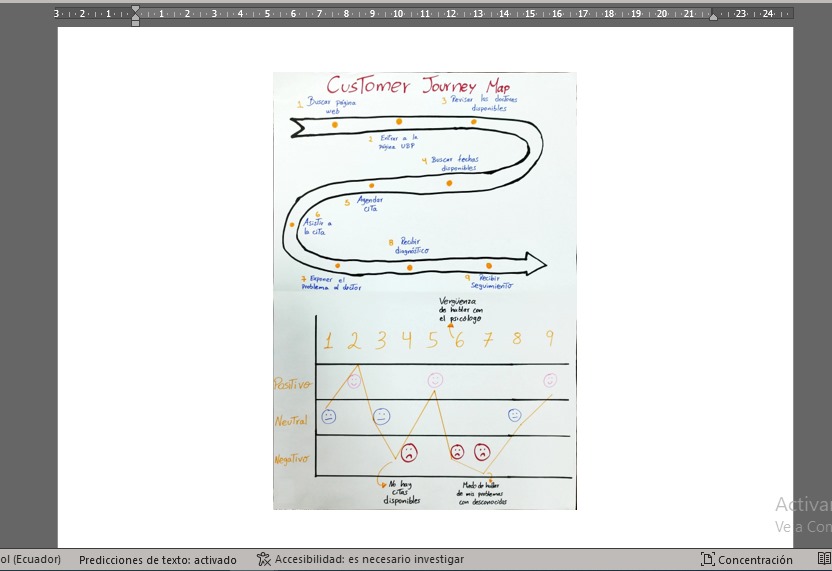 3 · 2 · 1 · 1 · 2 · 3 · 4 · 5 · 6 · 7 · 8 · 9 · 10 · 11 · 12 · 13 · 14 · 15 · 16 · 17 · 18 · 19 · 20 · 21 · 23 · 24
Customer Journey Map
1 Buscar página
web
3 Revisar los doctores
disponibles
2 Entrar a la
página UBP
4 Buscar fechas
disponibles
5 Agendar
cita
6
Asistir a
la cita
8 Recibir
diagnóstico
7 Exponer el
problema al doctor
9 Recibir
seguimiento
Vergüenza
de hablar con
el psicólogo
1 2 3 4 5 6 7 8 9
Positivo
Neutral
Negativo
No hay
citas
disponibles
Miedo de hablar
de mis problemas
con desconocidos
Activar
Ve a Con
ol (Ecuador) Predicciones de texto: activado Accesibilidad: es necesario investigar Concentración